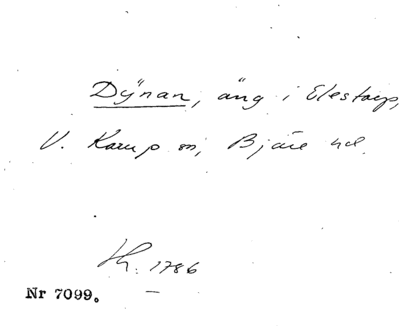 Dÿnan, äng i Elestorp,
V. Karup sn, Bjäre hd.
Lh. 1786
Nr 7099.